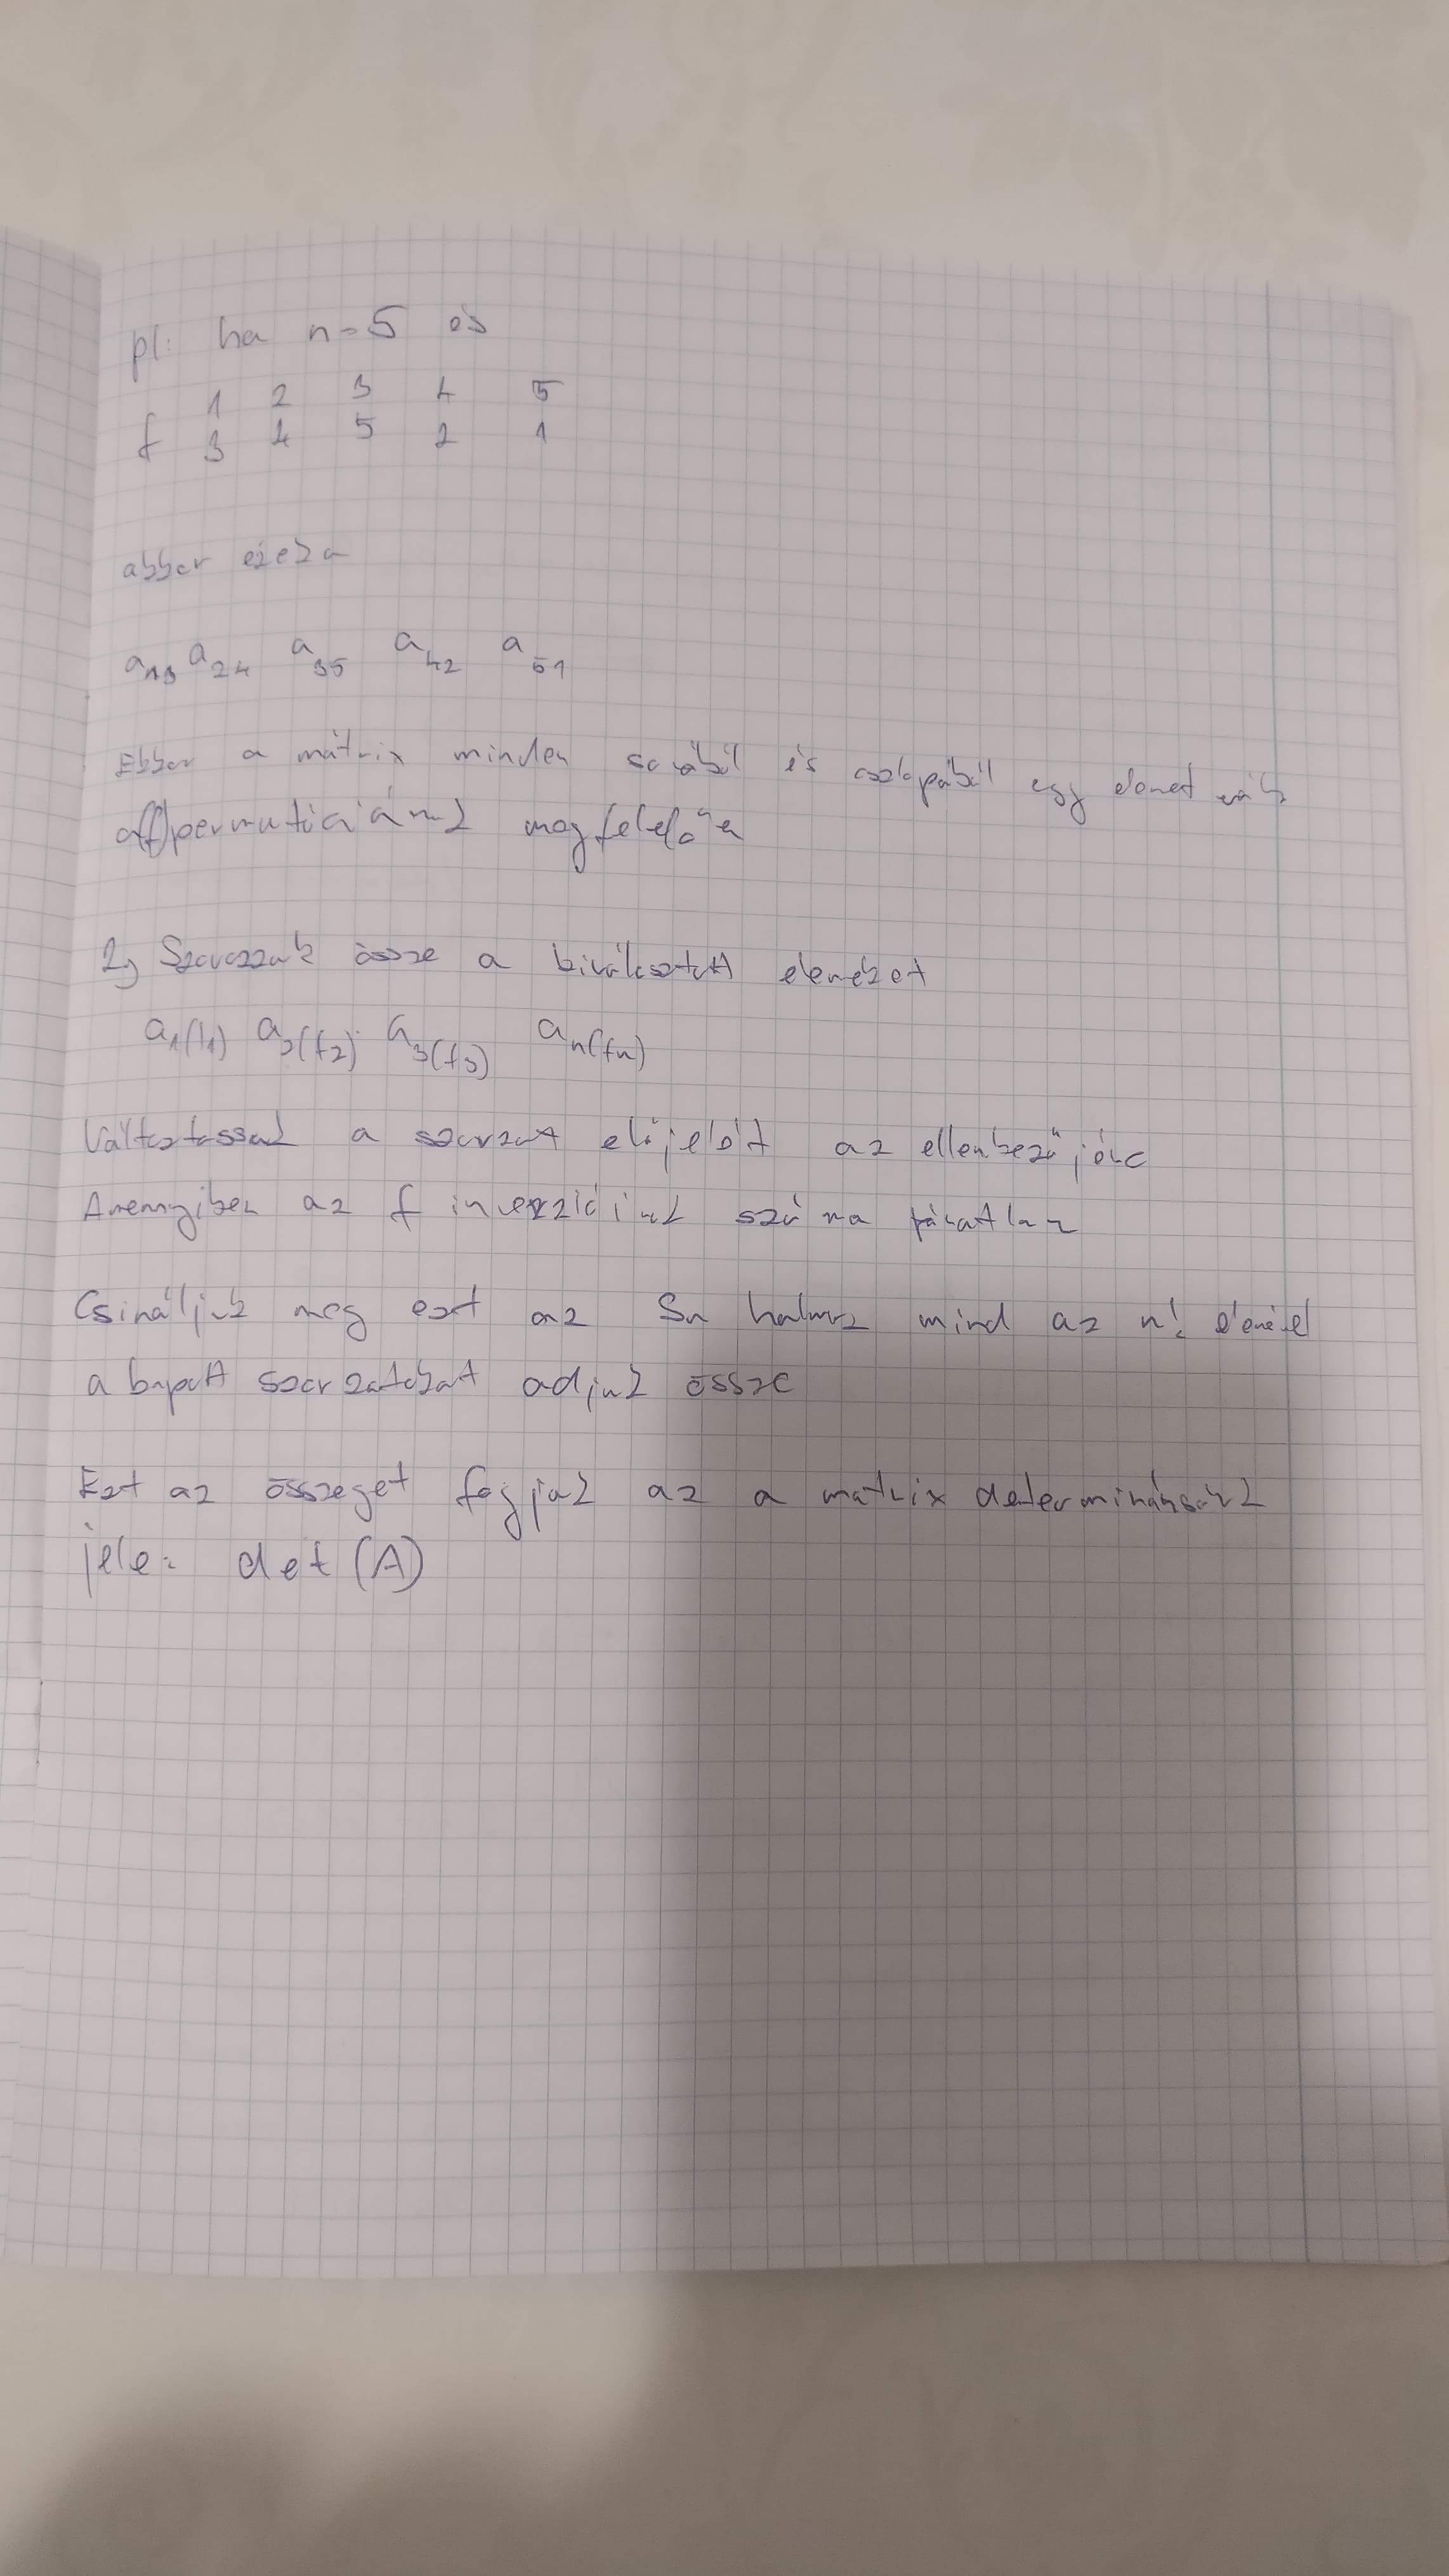 pl: ha n=5 és
1 2 3 4 5
f 3 4 5 2 1
akkor ezek a
a13 a24 a35 a42 a51
Ekkor a mátrix minden sorából és oszlopából egy elemet
a(f) permutációnak megfelelően
2, Szorozzuk össze a kiválasztott elemeket
a1(f1) a2(f2) a3(f3) an(fn)
Változtassuk a szorzat előjelét az ellenkezőjére
Amennyiben az f inverzióinak száma páratlan
Csináljuk meg ezt az Sn halmaz mind az n! elemével
a kapott szorzatokat adjuk össze
Ezt az összeget fogjuk az a mátrix determinánsának
jele: det(A)